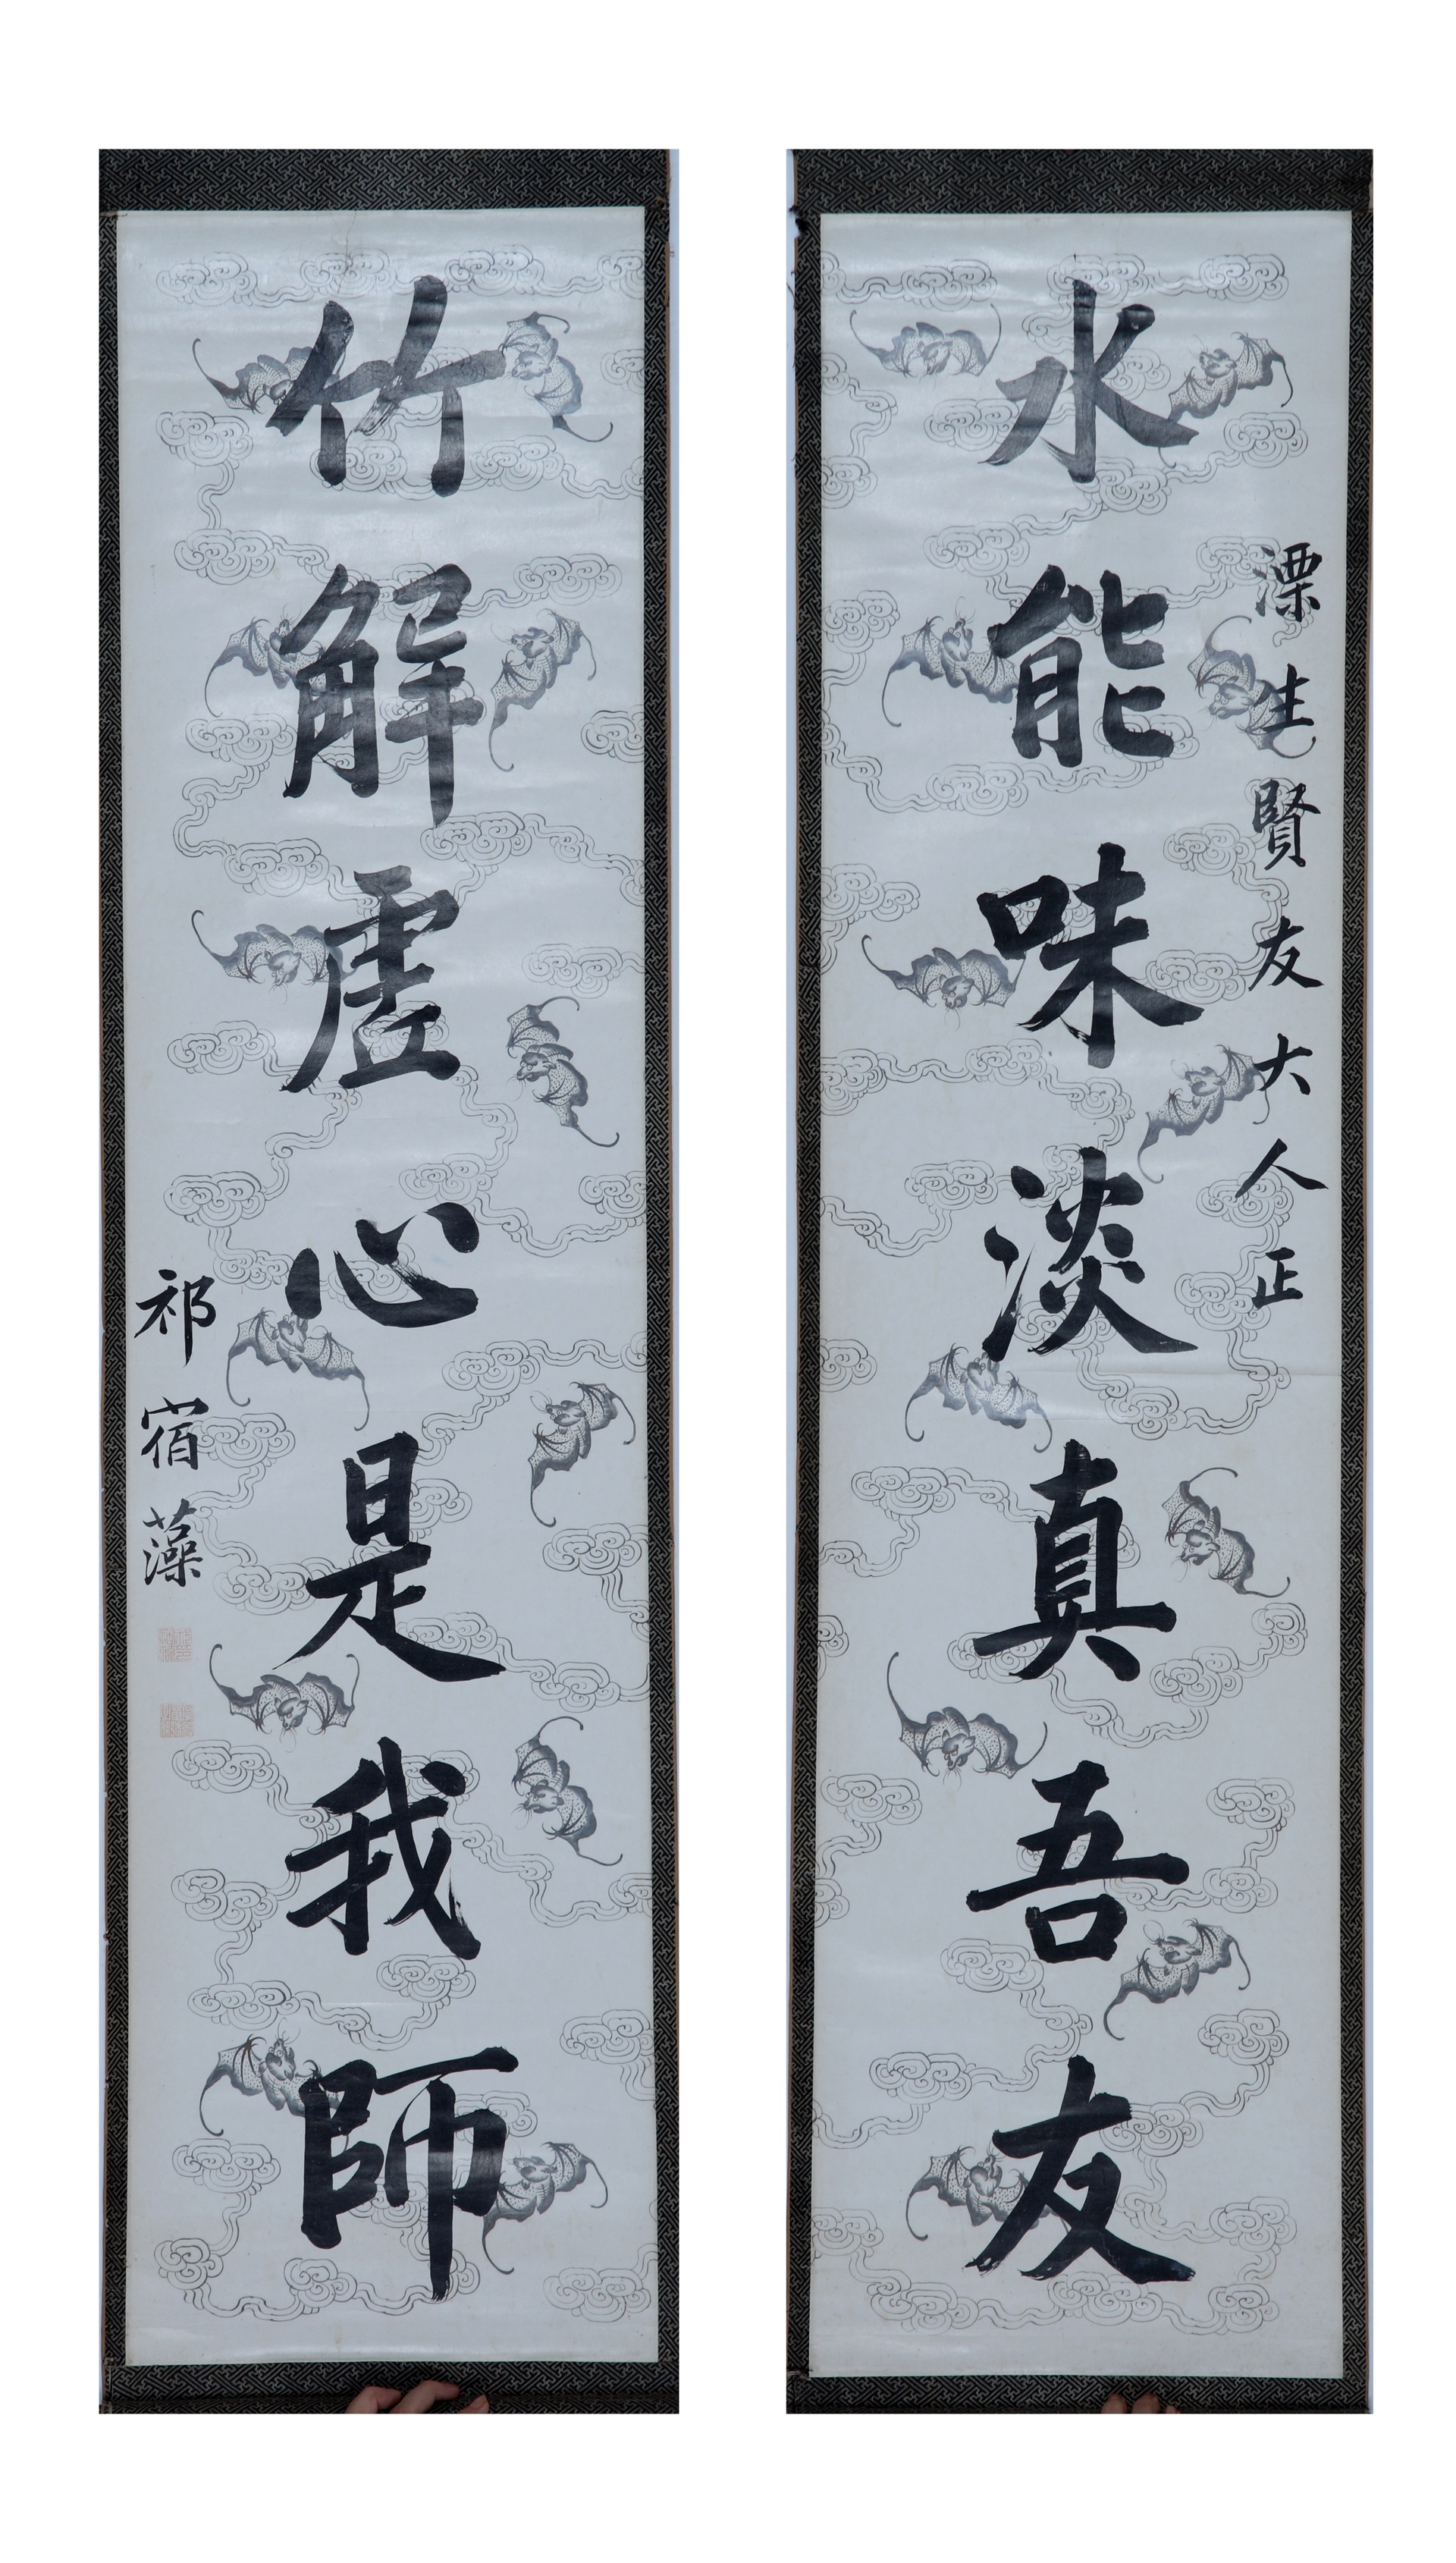 漂生賢友大人正
水能味淡真吾友
竹解虛心是我師
祁宿藻